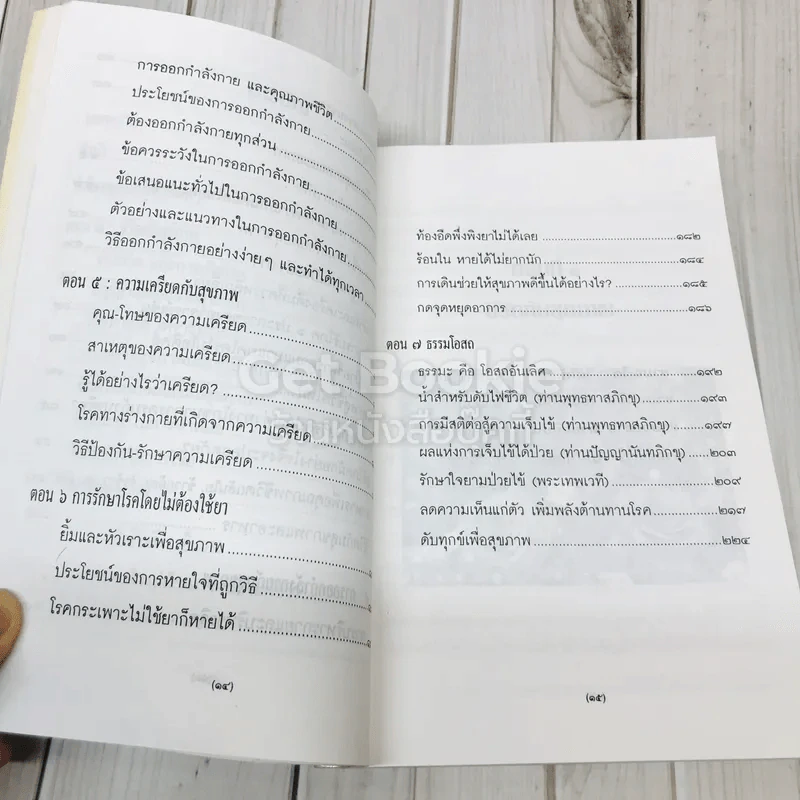 การออกกำลังกาย และคุณภาพชีวิต
ประโยชน์ของการออกกำลังกาย
ต้องออกกำลังกายทุกส่วน
ข้อควรระวังในการออกกำลังกาย
ข้อเสนอแนะทั่วไปในการออกกำลังกาย
ตัวอย่างและแนวทางในการออกกำลังกาย
วิธีออกกำลังกายอย่างง่ายๆ และทำได้ทุกเวลา
ตอน ๕ : ความเครียดกับสุขภาพ
คุณ-โทษของความเครียด
สาเหตุของความเครียด
รู้ได้อย่างไรว่าเครียด?
โรคทางร่างกายที่เกิดจากความเครียด
วิธีป้องกัน-รักษาความเครียด
ตอน ๖ การรักษาโรคโดยไม่ต้องใช้ยา
ยิ้มและหัวเราะเพื่อสุขภาพ
ประโยชน์ของการหายใจที่ถูกวิธี
โรคกระเพาะไม่ใช้ยาก็หายได้
(๑๔)
ท้องอืดพึ่งพิงยาไม่ได้เลย ๑๘๒
ร้อนใน หายได้ไม่ยากนัก ๑๘๔
การเดินช่วยให้สุขภาพดีขึ้นได้อย่างไร? ๑๘๕
กดจุดหยุดอาการ ๑๘๖
ตอน ๗ ธรรมโอสถ
ธรรมะ คือ โอสถอันเลิศ ๑๙๒
น้ำสำหรับดับไฟชีวิต (ท่านพุทธทาสภิกขุ) ๑๙๓
การมีสติต่อสู้ความเจ็บไข้ (ท่านพุทธทาสภิกขุ) ๑๙๗
ผลแห่งการเจ็บไข้ได้ป่วย (ท่านปัญญานันทภิกขุ) ๒๐๓
รักษาใจยามป่วยไข้ (พระเทพเวที) ๒๐๙
ลดความเห็นแก่ตัว เพิ่มพลังต้านทานโรค ๒๑๗
ดับทุกข์เพื่อสุขภาพ ๒๒๔
(๑๕)
Get Bookie
ร้านหนังสือบุ๊กกี้